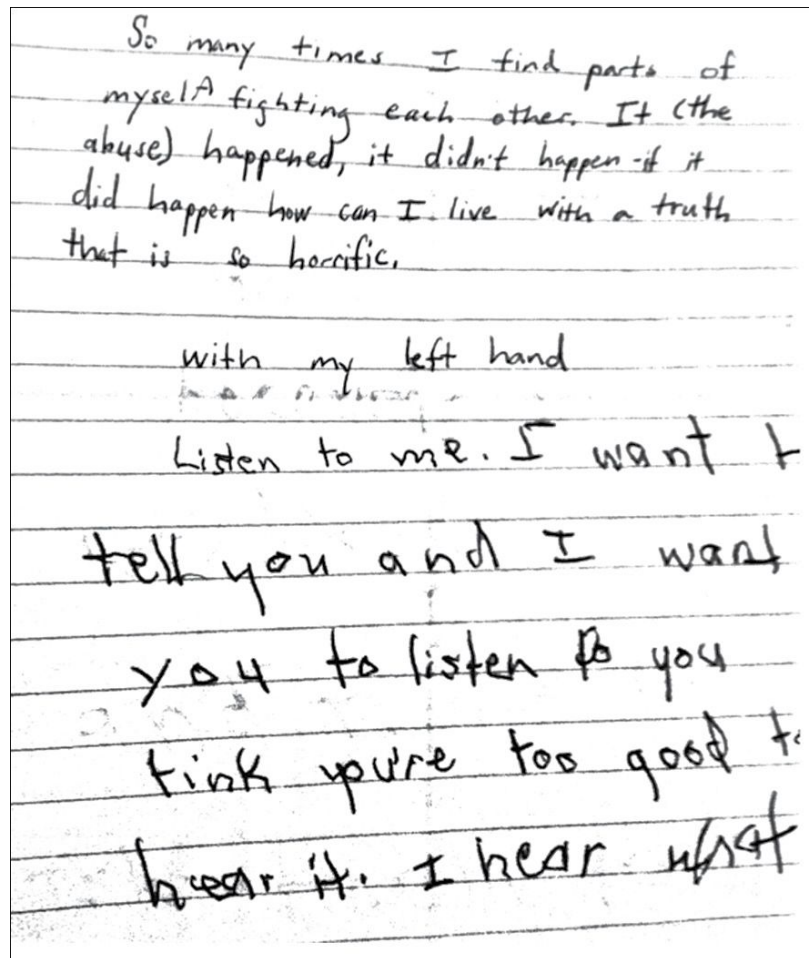 So many times I find parts of
myself fighting each other. It (the
abuse) happened, it didn't happen-if it
did happen how can I live with a truth
that is so horrific.
with my left hand
Listen to me. I want t
tell you and I want
you to listen Do you
tink you're too good to
hear it. I hear what